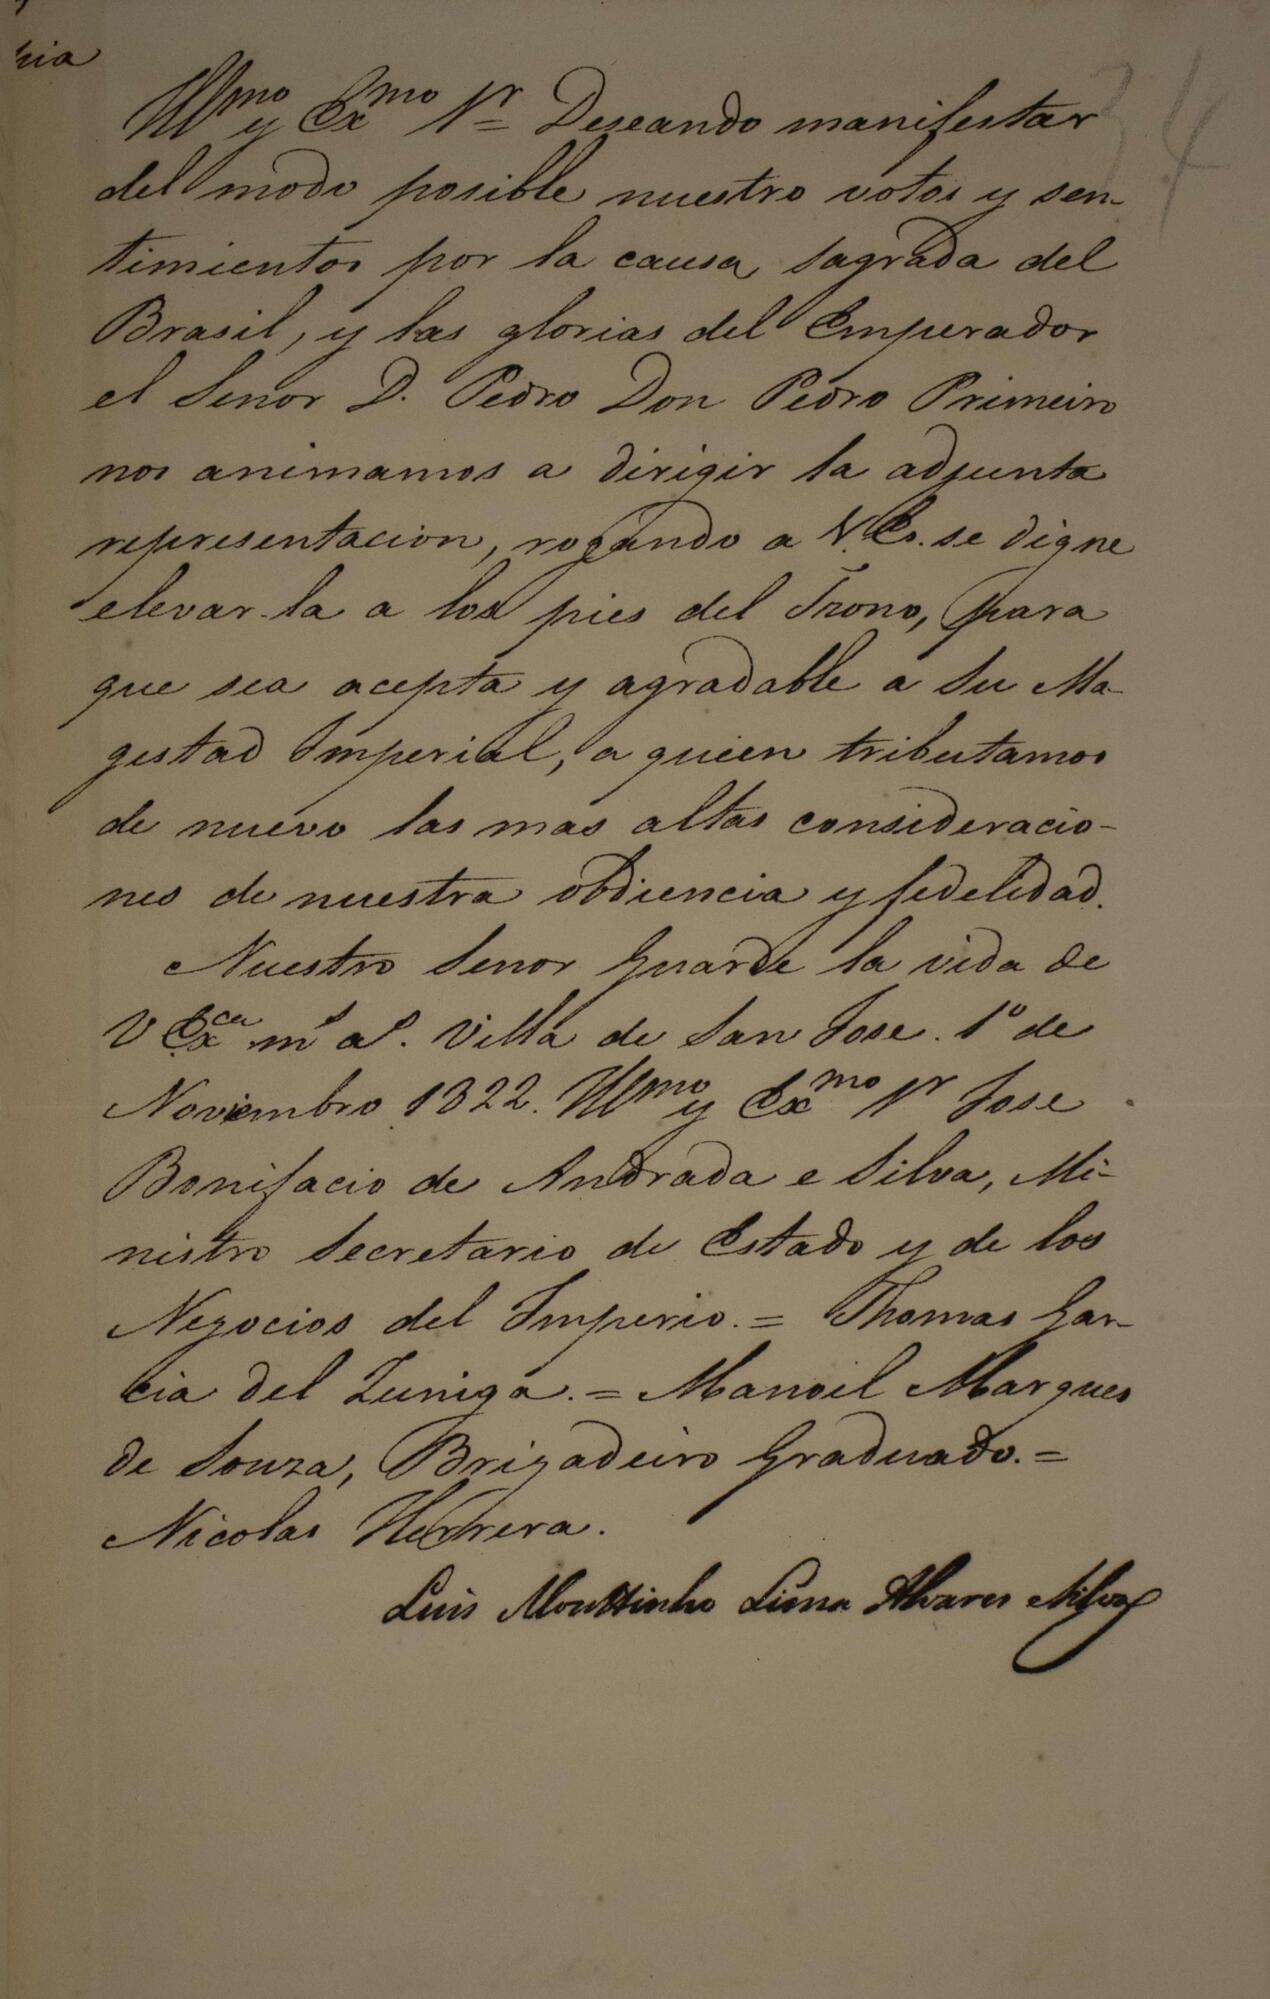 hia
34
Illmo y Exmo Sr = Deseando manifestar
del modo posible nuestro votos y sen-
timientos por la causa sagrada del
Brasil, y las glorias del Emperador
el Senor D. Pedro Don Pedro Primeiro
nos animamos a dirigir la adjunta
representacion, rogando a V. Ex. se digne
elevar-la a los pies del Trono, para
que sea acepta y agradable a Su Ma-
gestad Imperial, a quien tributamos
de nuevo las mas altas consideracio-
nes de nuestra obdiencia y fedelidad.
Nuestro Senor Guarde la vida de
V Exca ms as. Villa de San Jose. 1º de
Noviembro 1822. Illmo y Exmo Sr Jose
Bonifacio de Andrada e Silva, Mi-
nistro Secretario de Estado y de los
Negocios del Imperio. = Thomas Gar-
cia del Zuniga. = Manoil Marques
de Souza, Brigadeiro Graduado. =
Nicolas Herrera.
Luis Mouttinho Lima Alvares Silva